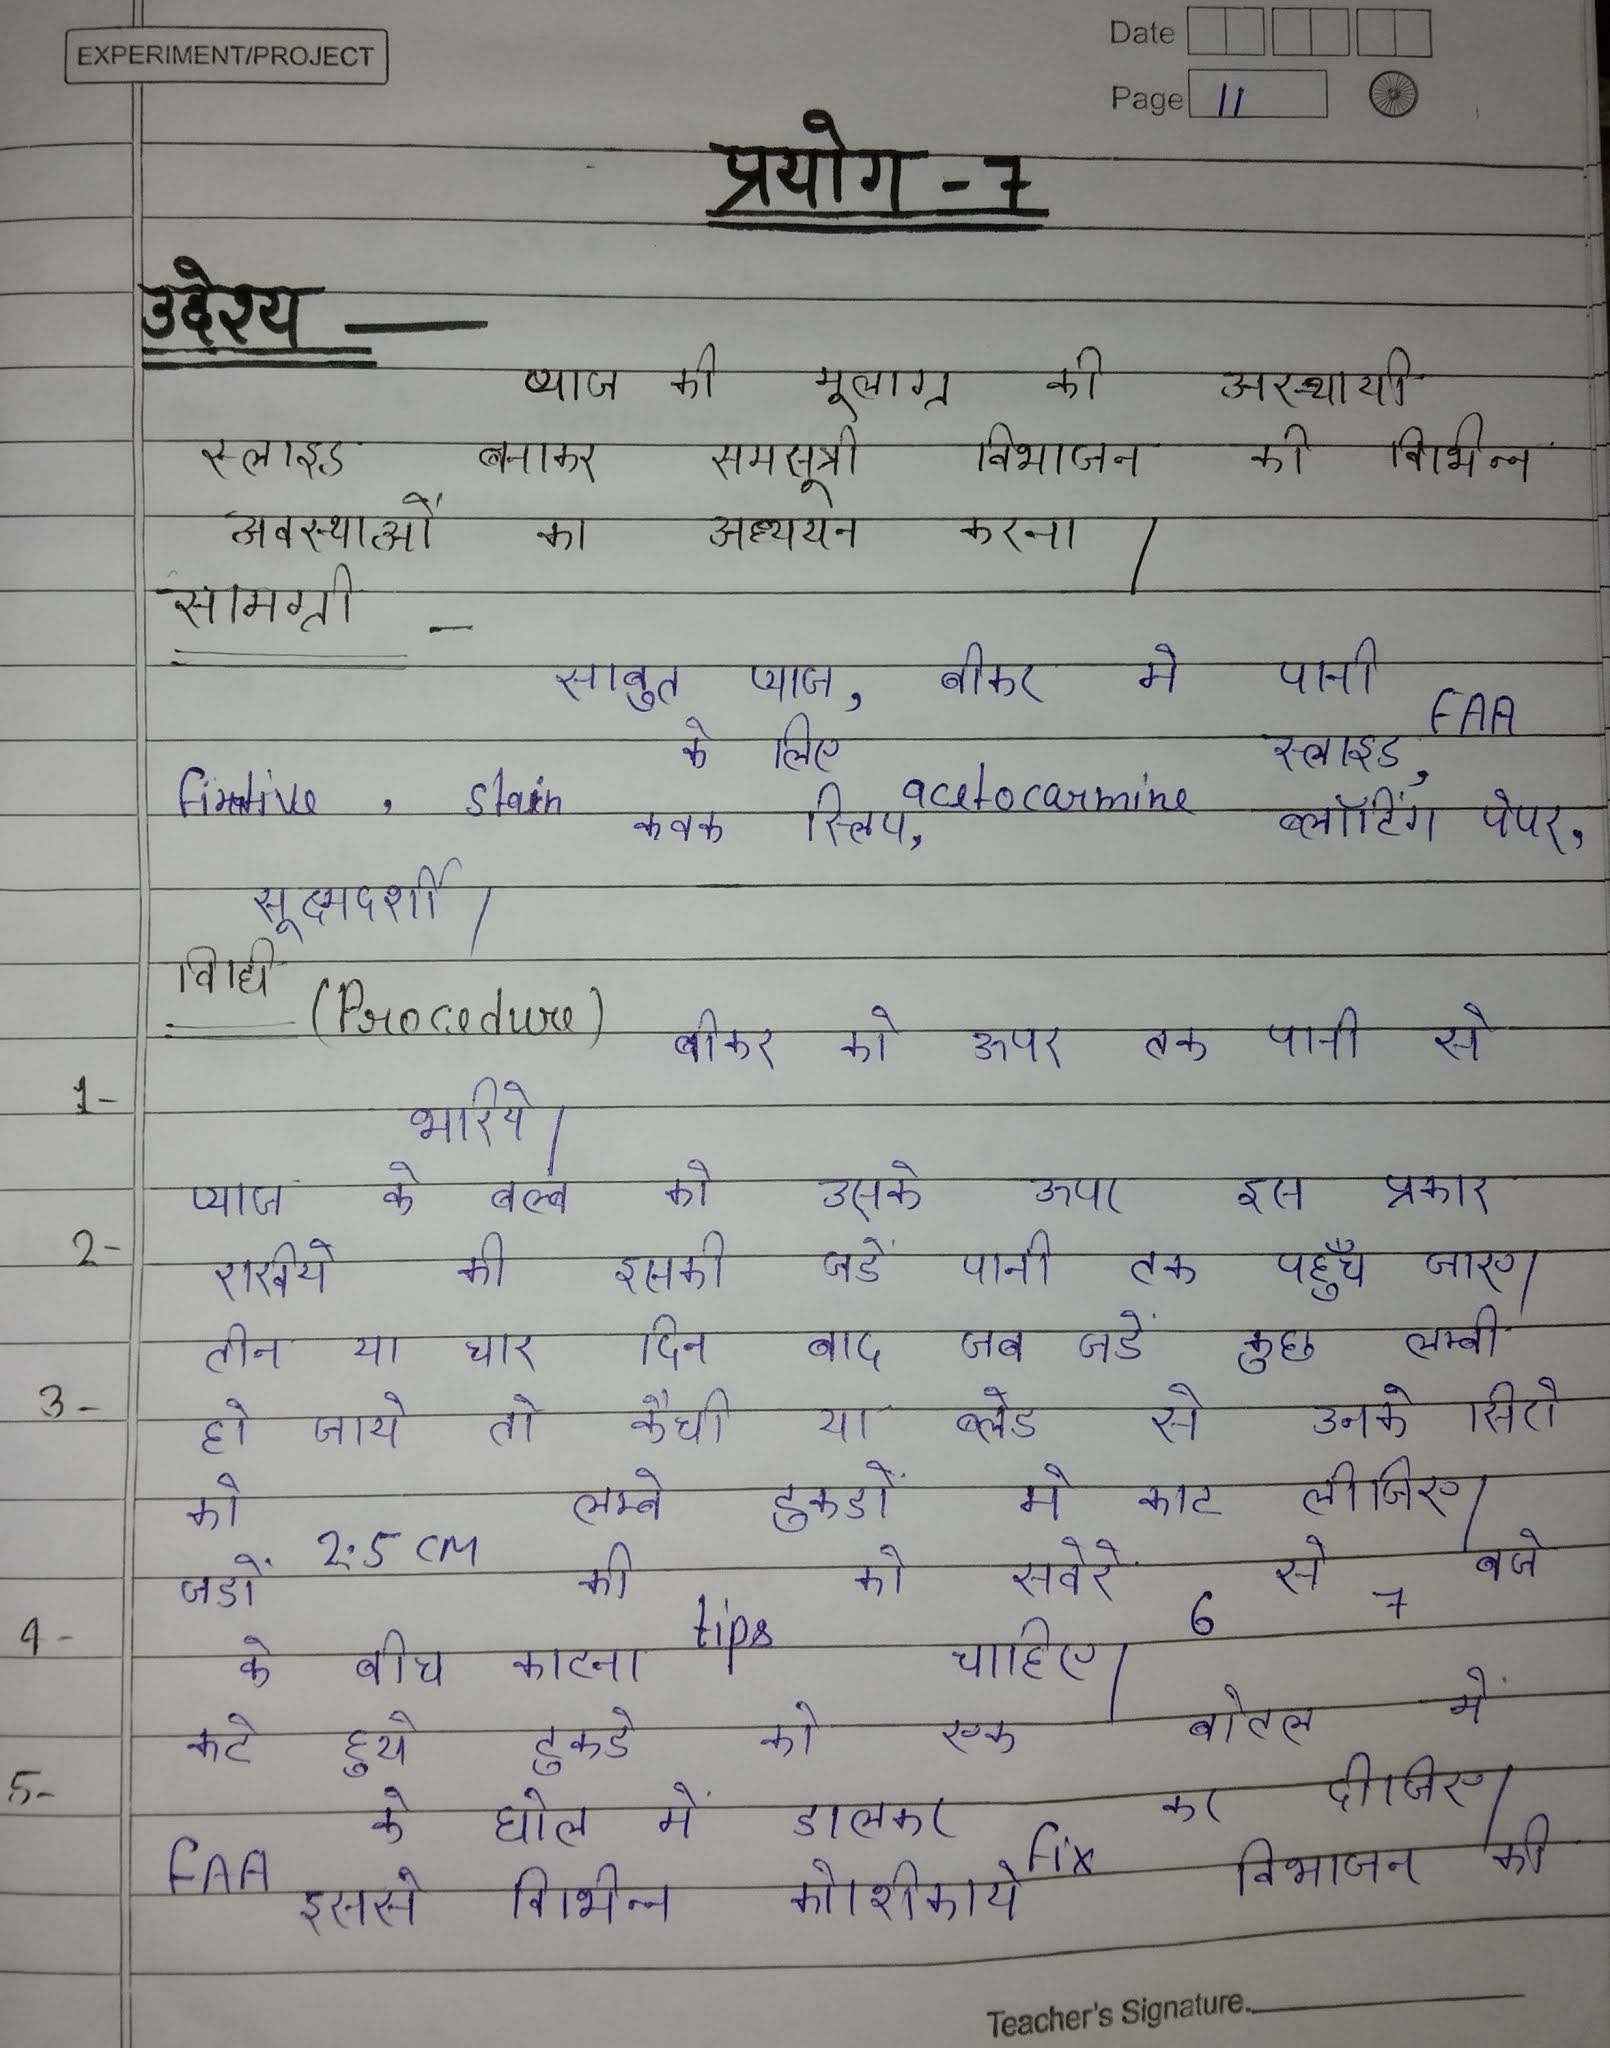 EXPERIMENT/PROJECT
Date
Page 11
प्रयोग - 7
उद्देश्य —
प्याज की मूलाग्र की अस्थायी
स्लाइड बनाकर समसूत्री विभाजन की विभिन्न
अवस्थाओं का अध्ययन करना ।
सामग्री -
साबुत प्याज, बीकर मे पानी
के लिए स्लाइड, FAA
fixative, stain कवक स्लिप, acetocarmine ब्लॉटिंग पेपर,
सूक्ष्मदर्शी ।
विधि (Procedure)
बीकर को ऊपर तक पानी से
1-
भरिये ।
प्याज के बल्ब को उसके ऊपर इस प्रकार
2- रखिये की इसकी जडें पानी तक पहुँच जाए ।
तीन या चार दिन बाद जब जडें कुछ लम्बी
3- हो जाये तो कैची या ब्लेड से उनके सिरो
को 2.5 CM लम्बे टुकडों मे काट लीजिए ।
जडों की tips को सवेरे 6 से 7 बजे
4- के बीच काटना चाहिए ।
कटे हुये टुकडे को एक बोतल में
5- FAA के घोल में डालकर fix कर दीजिए ।
इससे विभिन्न कोशीकाये विभाजन की
Teacher's Signature.